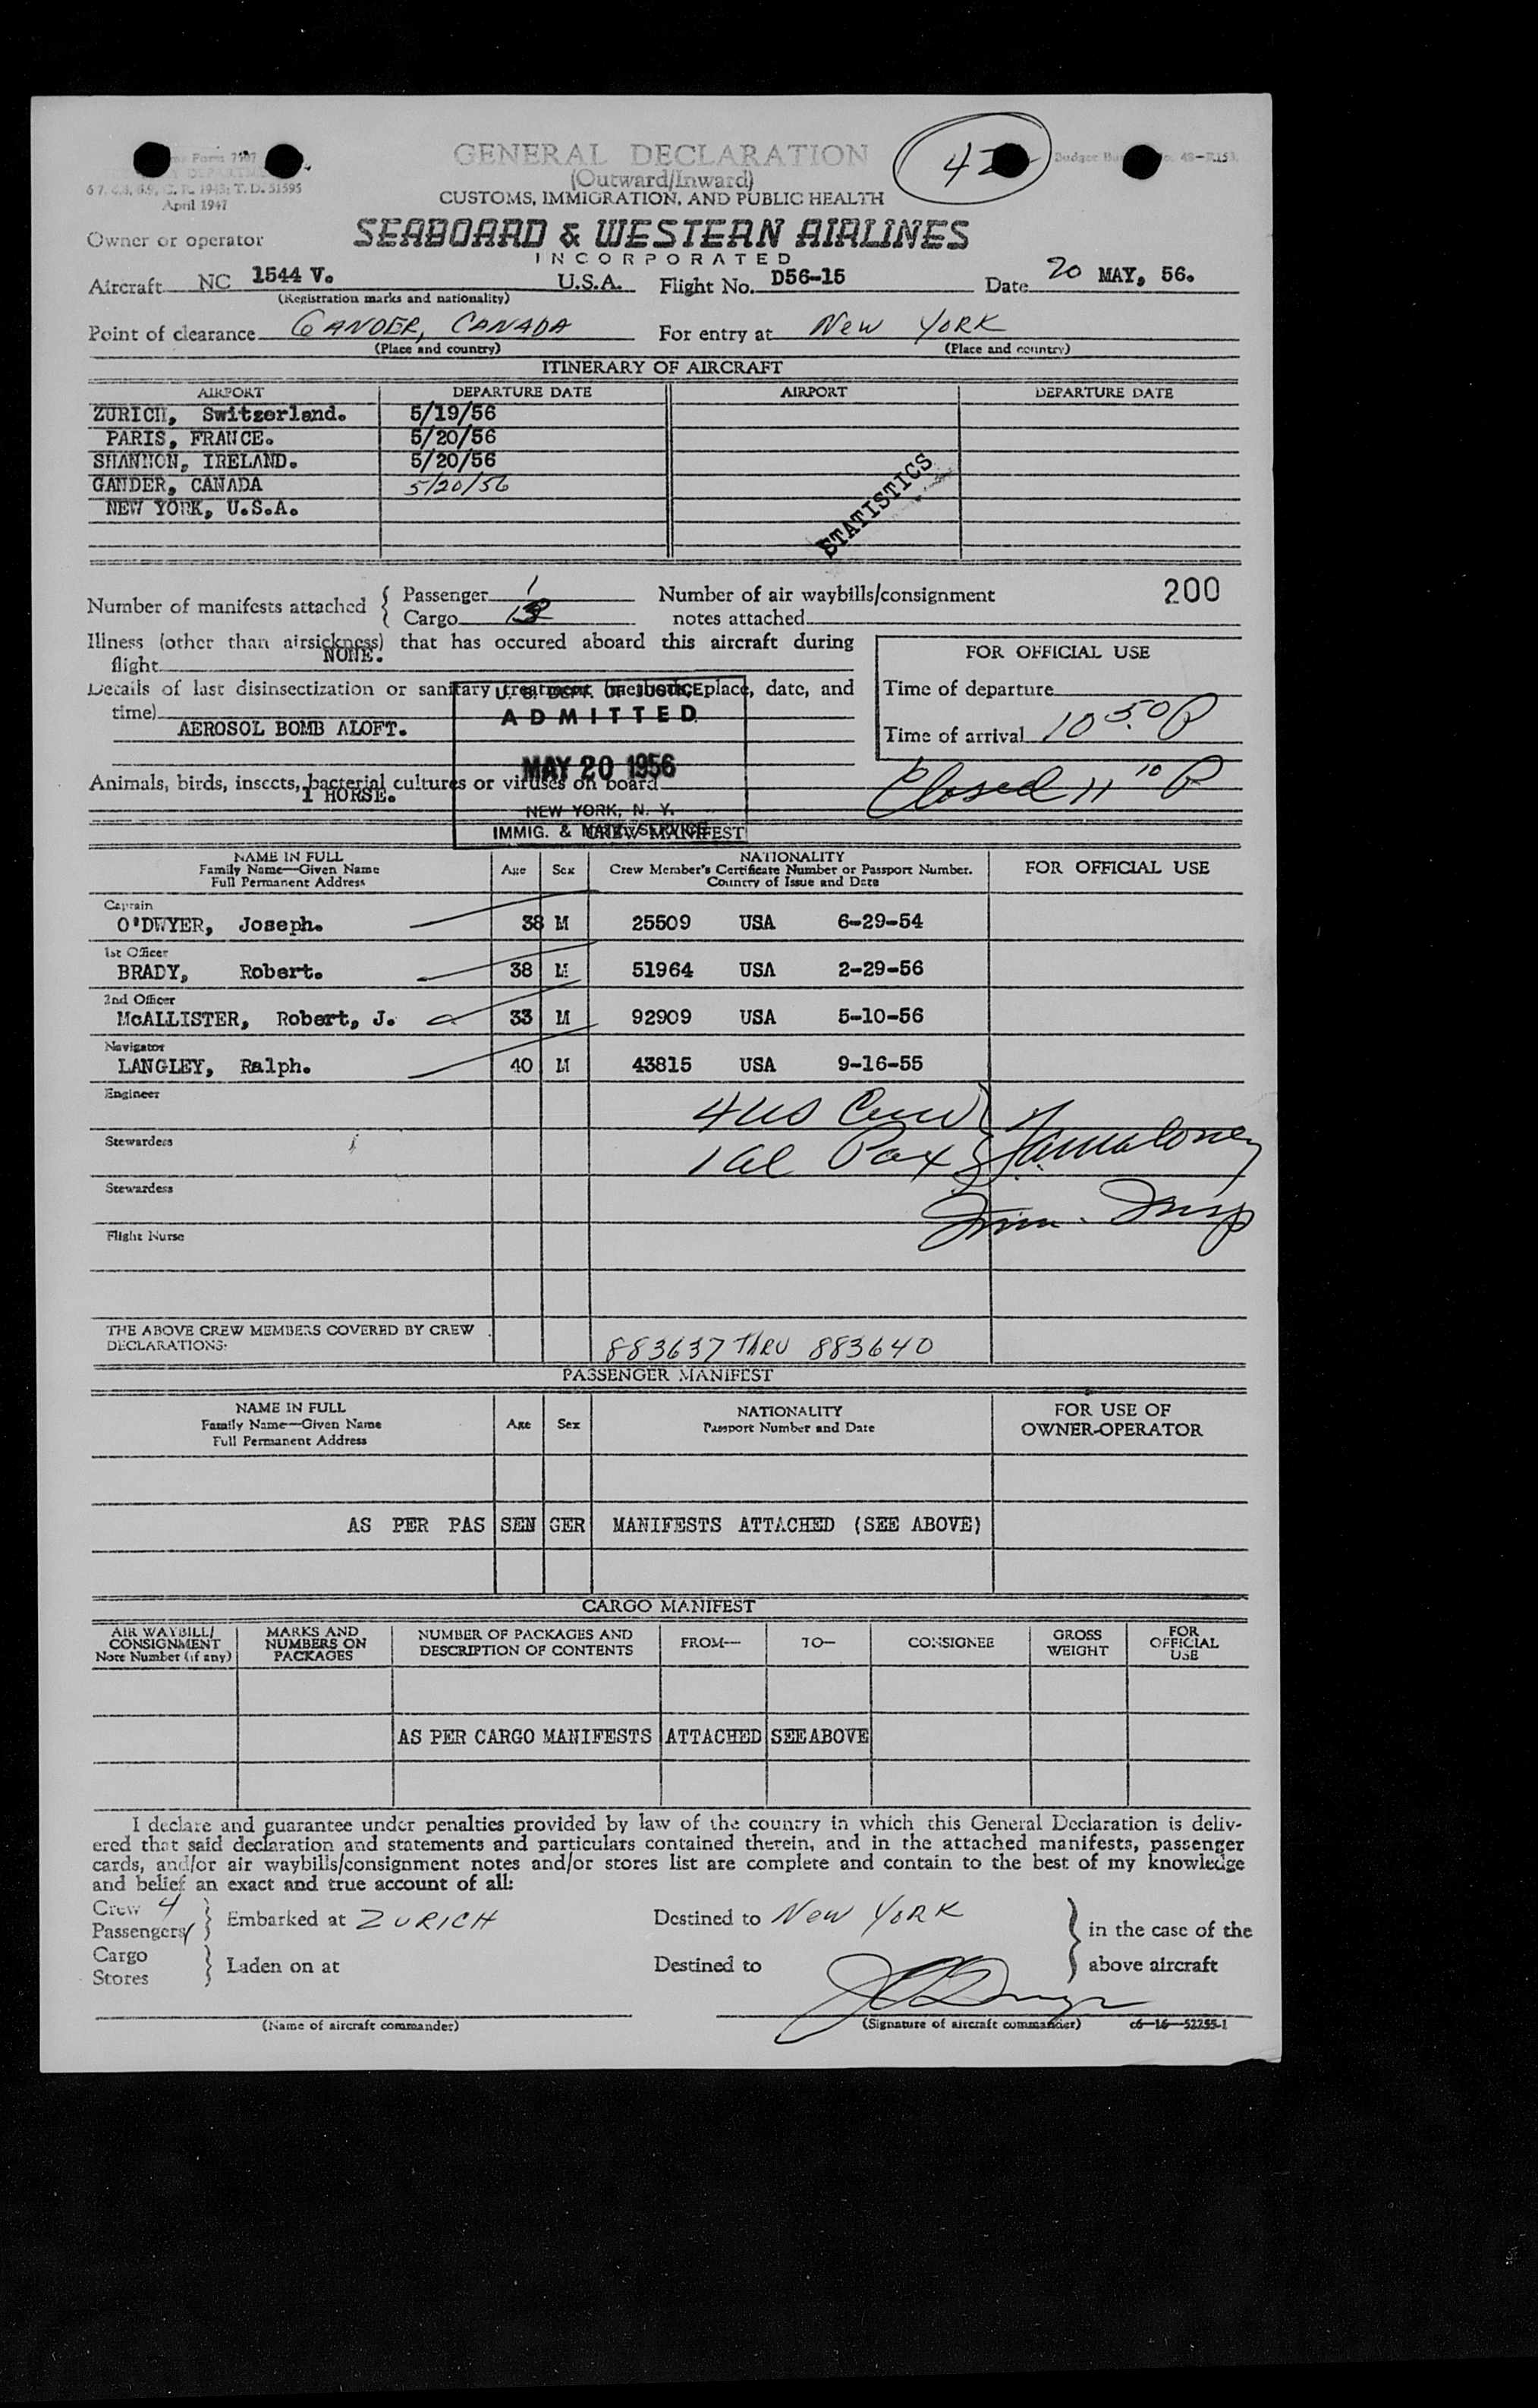 GENERAL DECLARATION
(Outward/Inward)
CUSTOMS, IMMIGRATION, AND PUBLIC HEALTH
Form 7507
T. D. 51595
April 1947
48-R153.
Owner or operator SEABOARD & WESTERN AIRLINES
INCORPORATED
Aircraft NC 1544 V. U.S.A. Flight No. D56-15 Date 20 MAY, 56.
(Registration marks and nationality)
Point of clearance GANDER, CANADA For entry at New YORK
(Place and country) (Place and country)
ITINERARY OF AIRCRAFT
AIRPORT DEPARTURE DATE AIRPORT DEPARTURE DATE
ZURICH, Switzerland. 5/19/56
PARIS, FRANCE. 5/20/56
SHANNON, IRELAND. 5/20/56
GANDER, CANADA 5/20/56
NEW YORK, U.S.A.
STATISTICS
Number of manifests attached { Passenger 1 Number of air waybills/consignment 200
Cargo notes attached
Illness (other than airsickness) that has occured aboard this aircraft during
flight NONE.
FOR OFFICIAL USE
Details of last disinsectization or sanitary treatment (method, place, date, and
time)
AEROSOL BOMB ALOFT.
Time of departure
Time of arrival 10 50 P
Closed 11 10 P
U. S. DEPT. OF JUSTICE
ADMITTED
MAY 20 1956
NEW YORK, N. Y.
IMMIG. & NATZ. SERVICE
Animals, birds, insects, bacterial cultures or viruses on board
1 HORSE.
CREW MANIFEST
NAME IN FULL
Family Name—Given Name
Full Permanent Address
Age Sex
NATIONALITY
Crew Member's Certificate Number or Passport Number.
Country of Issue and Date
FOR OFFICIAL USE
Captain
O'DWYER, Joseph. 38 M 25509 USA 6-29-54
1st Officer
BRADY, Robert. 38 M 51964 USA 2-29-56
2nd Officer
McALLISTER, Robert, J. 33 M 92909 USA 5-10-56
Navigator
LANGLEY, Ralph. 40 M 43815 USA 9-16-55
Engineer
4 US Crew
Stewardess
1 al Pax
Stewardess
Imm. Insp
Flight Nurse
THE ABOVE CREW MEMBERS COVERED BY CREW
DECLARATIONS: 883637 THRU 883640
PASSENGER MANIFEST
NAME IN FULL
Family Name—Given Name
Full Permanent Address
Age Sex
NATIONALITY
Passport Number and Date
FOR USE OF
OWNER-OPERATOR
AS PER PAS SEN GER MANIFESTS ATTACHED (SEE ABOVE)
CARGO MANIFEST
AIR WAYBILL/
CONSIGNMENT
Note Number (if any)
MARKS AND
NUMBERS ON
PACKAGES
NUMBER OF PACKAGES AND
DESCRIPTION OF CONTENTS
FROM—
TO—
CONSIGNEE
GROSS
WEIGHT
FOR
OFFICIAL
USE
AS PER CARGO MANIFESTS ATTACHED SEE ABOVE
I declare and guarantee under penalties provided by law of the country in which this General Declaration is deliv-
ered that said declaration and statements and particulars contained therein, and in the attached manifests, passenger
cards, and/or air waybills/consignment notes and/or stores list are complete and contain to the best of my knowledge
and belief an exact and true account of all:
Crew 4
Passengers 1 } Embarked at ZURICH Destined to New YORK } in the case of the
Cargo
Stores } Laden on at Destined to above aircraft
(Name of aircraft commander) (Signature of aircraft commander) c6—16—52255-1